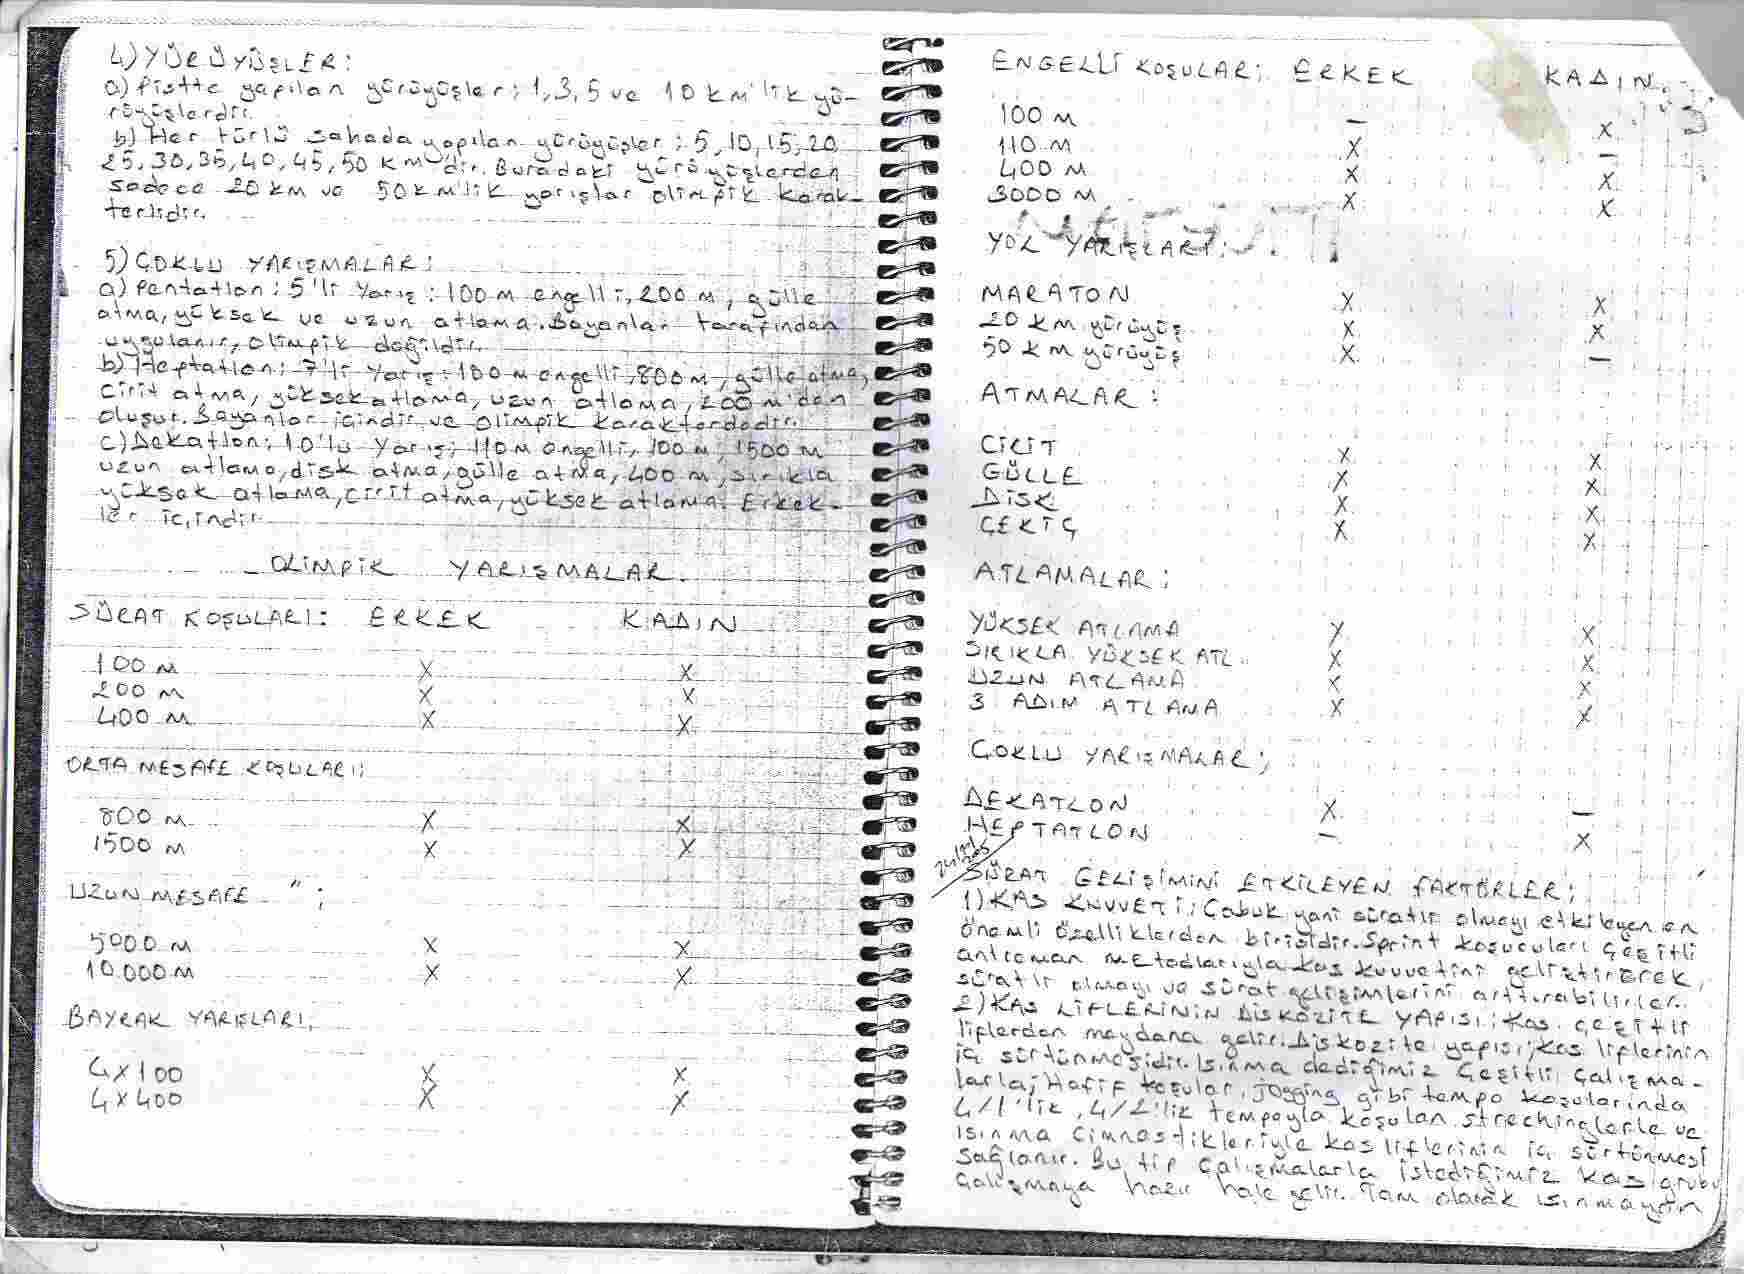 4) YÜRÜYÜŞLER:
a) Pistte yapılan yürüyüşler; 1, 3, 5 ve 10 km'lik yü-
rüyüşlerdir.
b) Her türlü sahada yapılan yürüyüşler: 5, 10, 15, 20
25, 30, 35, 40, 45, 50 km'dir. Buradaki yürüyüşlerden
sadece 20 km ve 50 km'lik yarışlar olimpik karak-
terlidir.
5) ÇOKLU YARIŞMALAR:
a) Pentatlon: 5'li Yarış: 100 m engelli, 200 m, gülle
atma, yüksek ve uzun atlama. Bayanlar tarafından
uygulanır, olimpik değildir.
b) Heptatlon: 7'li Yarış: 100 m engelli, 800 m, gülle atma,
cirit atma, yüksek atlama, uzun atlama, 200 m'den
oluşur. Bayanlar içindir ve olimpik karakterdedir.
c) Dekatlon: 10'lu Yarış; 110 m engelli, 100 m, 1500 m
uzun atlama, disk atma, gülle atma, 400 m, sırıkla
yüksek atlama, cirit atma, yüksek atlama. Erkek-
ler içindir.
- OLİMPİK YARIŞMALAR.
SÜRAT KOŞULARI: ERKEK KADIN
100 m x x
200 m x x
400 m x x
ORTA MESAFE KOŞULARI;
800 m x x
1500 m x x
UZUN MESAFE " ;
5000 m x x
10.000 m x x
BAYRAK YARIŞLARI;
4x100 x x
4x400 x x
ENGELLİ KOŞULAR; ERKEK KADIN
100 m - x
110 m x -
400 m x x
3000 m x x
YOL YARIŞLARI;
MARATON x x
20 km yürüyüş x x
50 km yürüyüş x -
ATMALAR:
CİRİT x x
GÜLLE x x
DİSK x x
ÇEKİÇ x x
ATLAMALAR;
YÜKSEK ATLAMA x x
SIRIKLA YÜKSEK ATL. x x
UZUN ATLAMA x x
3 ADIM ATLAMA x x
ÇOKLU YARIŞMALAR;
DEKATLON x -
HEPTATLON - x
SÜRAT GELİŞİMİNİ ETKİLEYEN FAKTÖRLER;
1) KAS KUVVETİ; Çabuk yani süratlı olmayı etkileyen en
önemli özelliklerden birisidir. Sprint koşucuları çeşitli
antreman metodlarıyla kas kuvvetini geliştirerek,
süratlı olmayı ve sürat gelişimlerini arttırabilirler.
2) KAS LİFLERİNİN DİSKOZİTE YAPISI; Kas çeşitli
liflerden meydana gelir. Diskozite yapısı; kas liflerinin
iç sürtünmesidir. Isınma dediğimiz çeşitli çalışma-
larla; Hafif koşular, jogging gibi tempo koşularında
4/1'lik, 4/2'lik tempoyla koşulan strechinglerle ve
ısınma cimnastikleriyle kas liflerinin iç sürtünmesi
sağlanır. Bu tip çalışmalarla istediğimiz kas grubu
çalışmaya hazır hale gelir. Tam olarak ısınmayan